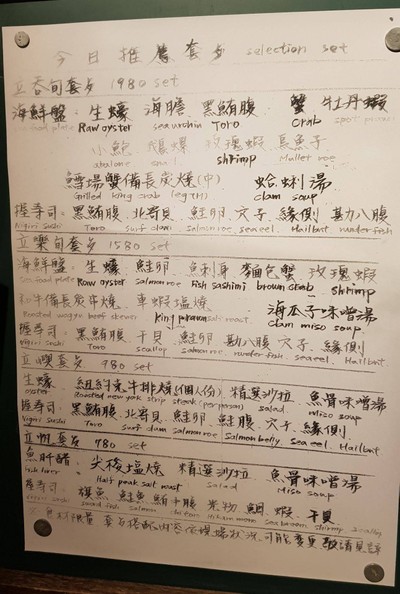 今日推薦套餐 selection set
立呑旬套餐 1980 set
海鮮盤: 生蠔 海膽 黑鮪腹 蟹 牡丹蝦
Seafood plate Raw oyster sea urchin Toro crab spot prawn
小鮑 玫瑰蝦 烏魚子
abalone snail shrimp Mullet roe
鱈場蟹備長炭燒(中) 蛤蜊湯
Grilled king crab leg(M) clam soup
握壽司: 黑鮪腹 北寄貝 鮭卵 穴子 緣側 甚八腹
Nigiri sushi Toro surf clam salmon roe sea eel Halibut rudderfish
立樂旬套餐 1580 set
海鮮盤: 生蠔 鮭卵 魚刺身 麵包蟹 玫瑰蝦
Sea food plate Raw oyster salmon roe Fish sashimi brown crab shrimp
和牛備長炭串燒 草蝦塩燒 海瓜子味噌湯
Roasted wagyu beef skewer king prawn salt roast clam miso soup
握壽司: 黑鮪腹 干貝 鮭卵 甚八腹 穴子 緣側
Nigiri sushi Toro scallop salmon roe rudderfish sea eel Halibut
套餐 980 set
生蠔 紐約克牛排燒(1個人份) 精選沙拉 魚骨味噌湯
oyster Roasted new york strip steak (per person) salad miso soup
握壽司: 黑鮪腹 北寄貝 鮭卵 鮭腹 穴子 緣側
Nigiri sushi Toro surf clam salmon roe salmon belly sea eel Halibut
套餐 780 set
魚肝醋 尖梭塩燒 精選沙拉 魚骨味噌湯
fish liver Half peak salt roast salad miso soup
握壽司: 旗魚 鮭魚 鯛 蝦 干貝
Nigiri sushi sword fish salmon sea bream shrimp scallop
※食材限量 套餐搭配內容依現場狀況可能變更 敬請見諒